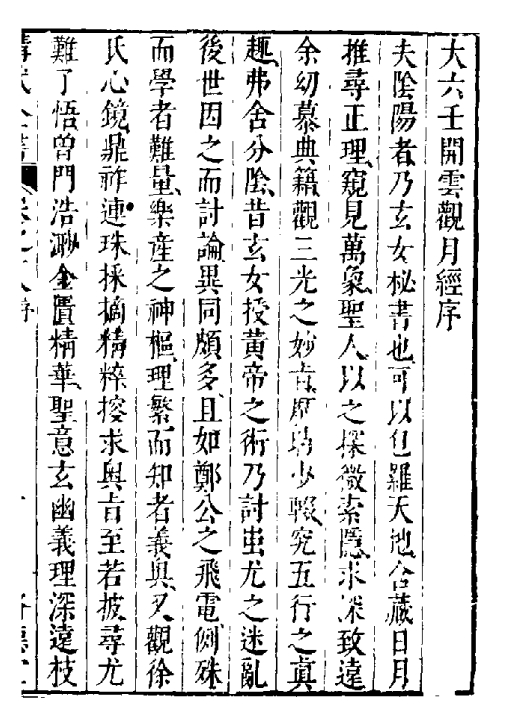 大六壬開雲觀月經序
夫陰陽者乃玄女秘書也可以包羅天地含藏日月
推尋正理窺見萬象聖人以之探微索隱求深致遠
余幼慕典籍觀三光之妙㫖歷呂少輟究五行之真
趣弗舍分陰昔玄女授黃帝之術乃討蚩尤之迷亂
後世因之而討論異同頗多且如鄭公之飛電側殊
而學者難量樂產之神樞理繁而知者義與又觀徐
氏心鏡鼎祚連珠採摘精粹搜求奥旨至若披尋尤
難了悟曾門浩渺金匱精華聖意玄幽義理深遠枝